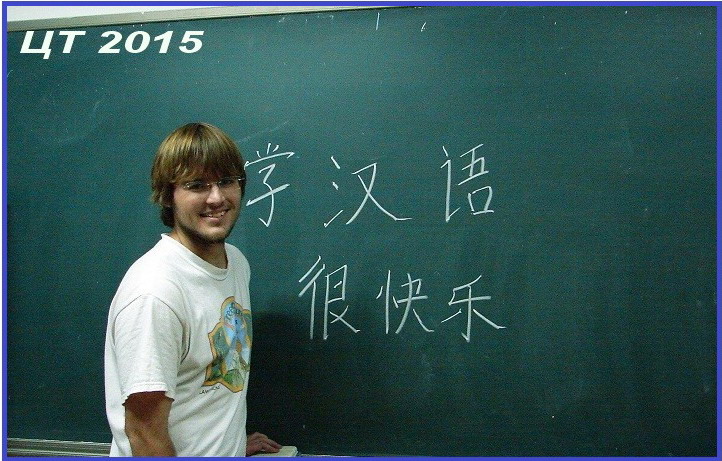 ЦТ 2015
学汉语
很快乐